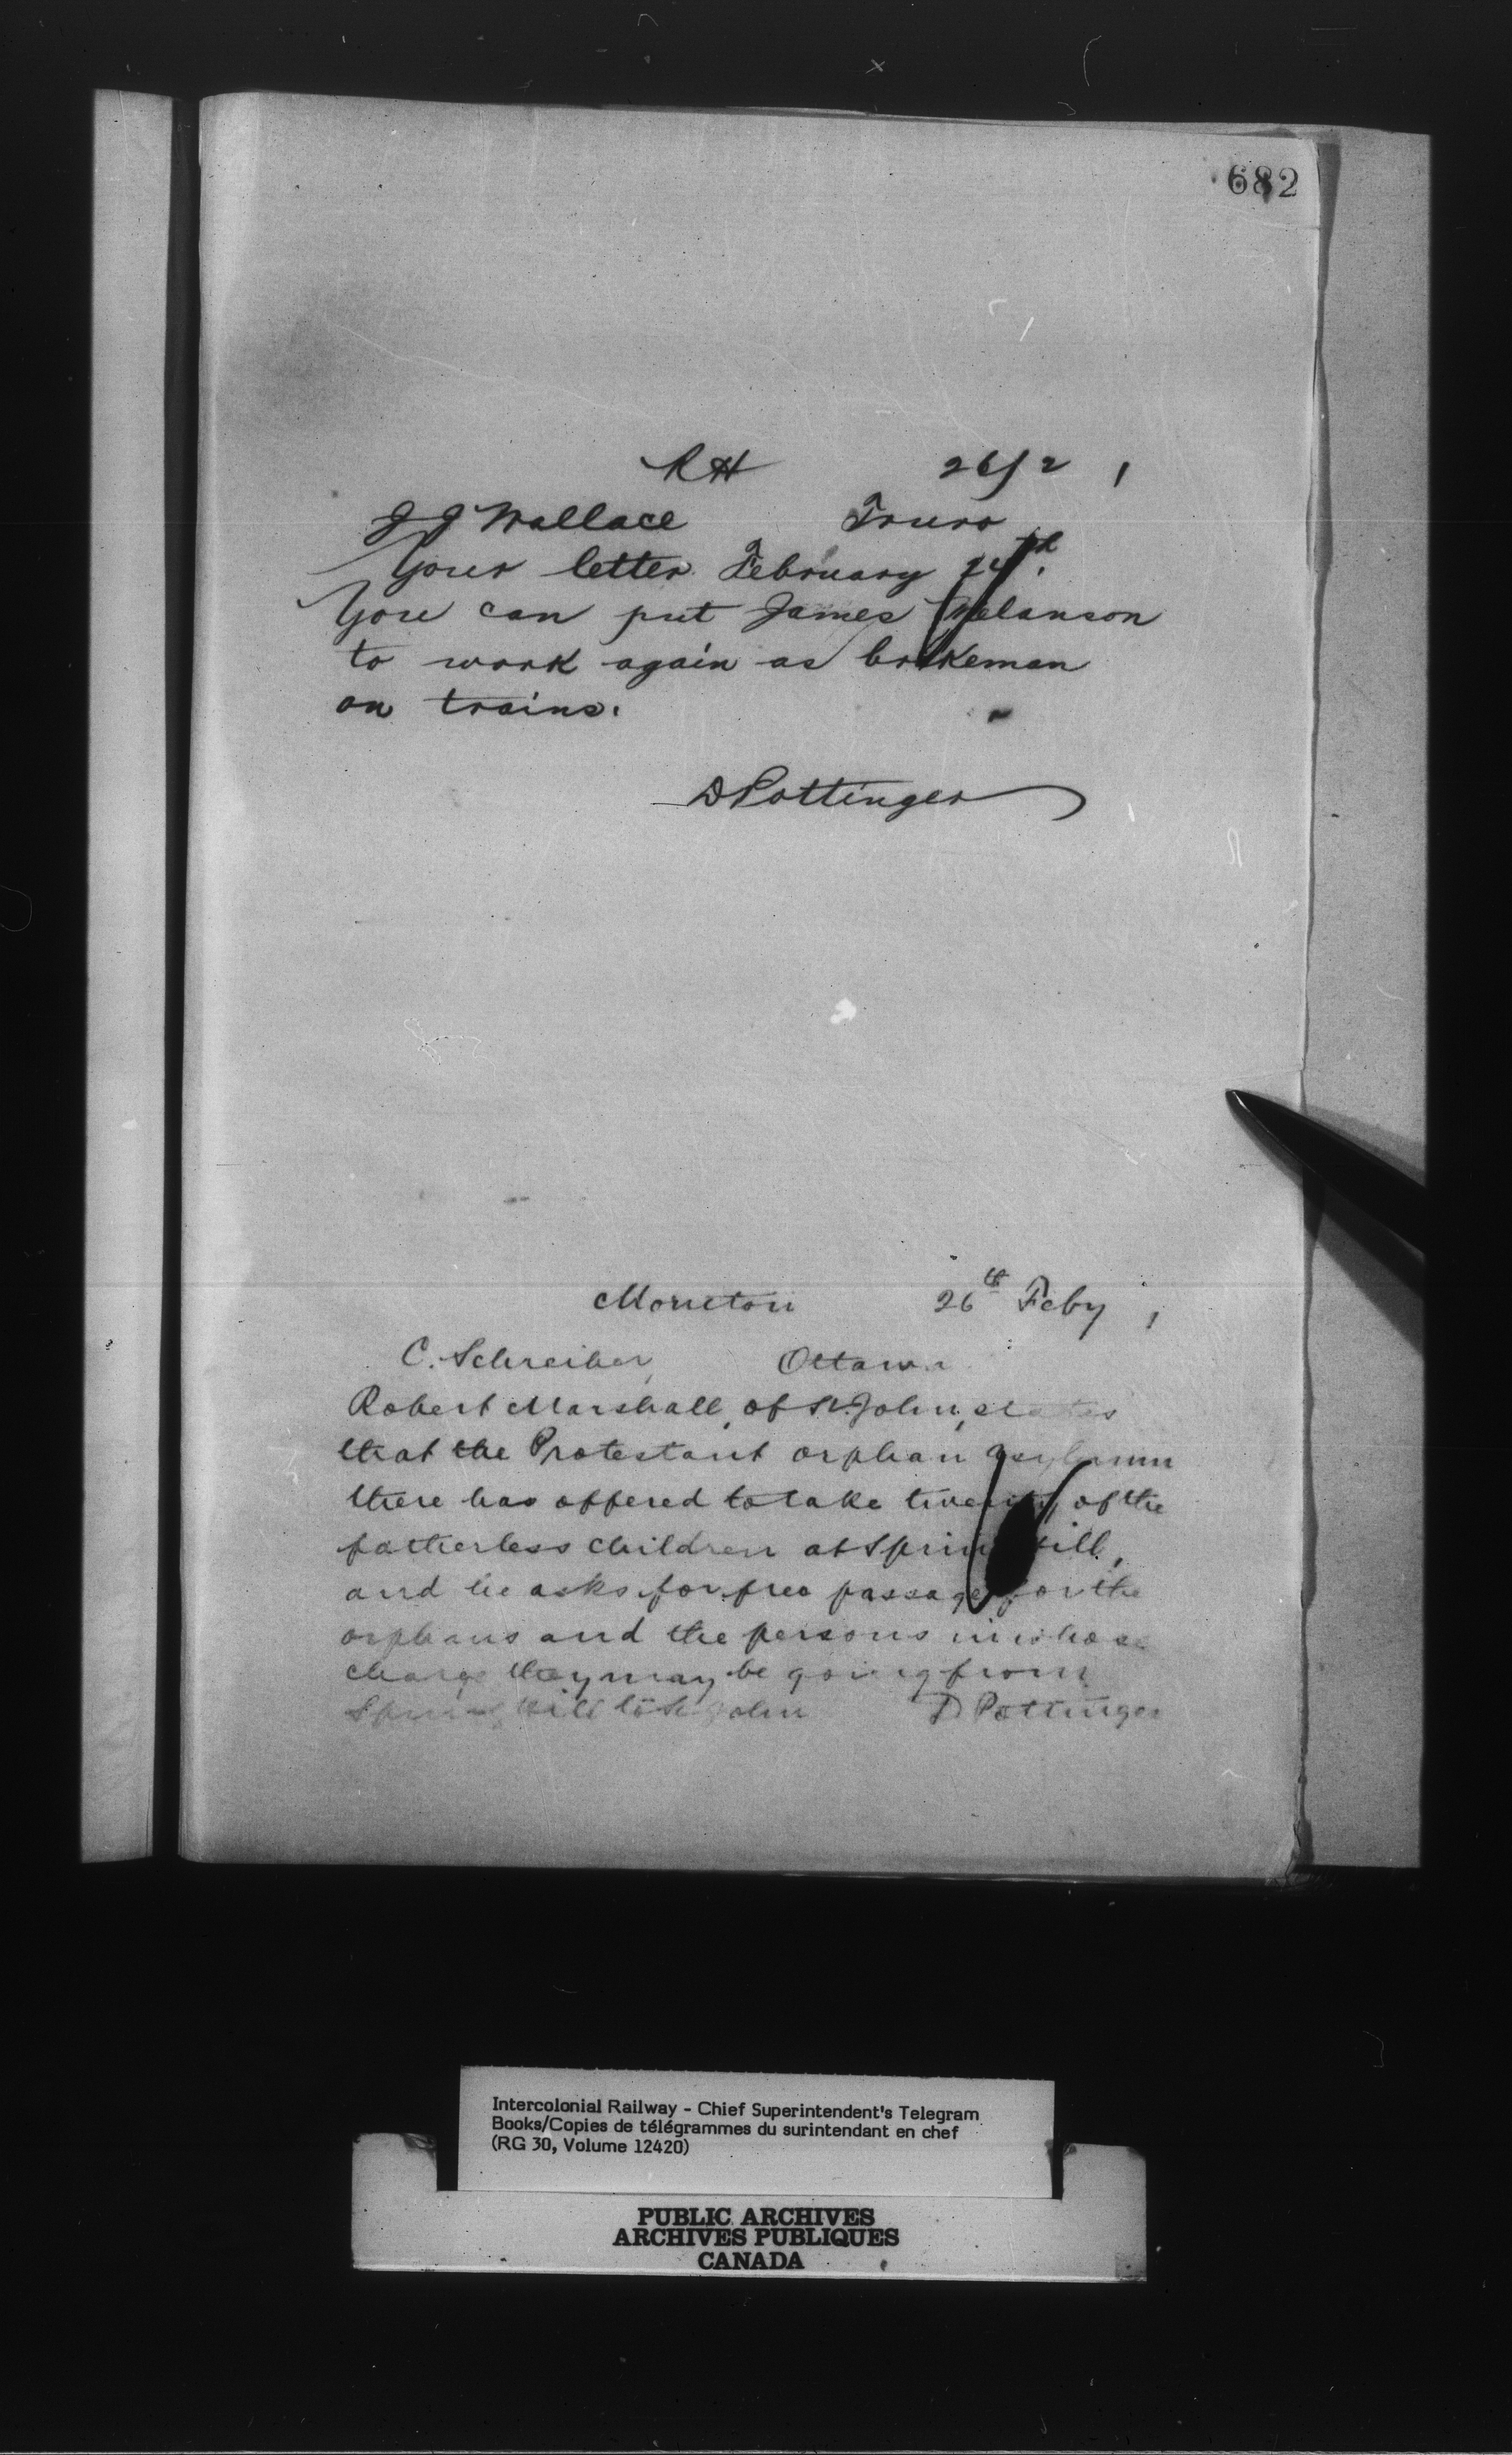 682
RH 26/2 1
J J Wallace Truro
Your letter February 24th.
You can put James Melanson
to work again as brakeman
on trains.
D Pottinger
Moncton 26th Feby 1
C. Schreiber, Ottawa
Robert Marshall, of St. John, states
that the Protestant orphan asylumn
there has offered to take twenty of the
fatherless children at Spring Hill,
and he asks for free passage for the
orphans and the persons in whose
charge they may be going from
Spring Hill to St John D Pottinger
Intercolonial Railway - Chief Superintendent's Telegram
Books/Copies de télégrammes du surintendant en chef
(RG 30, Volume 12420)
PUBLIC ARCHIVES
ARCHIVES PUBLIQUES
CANADA